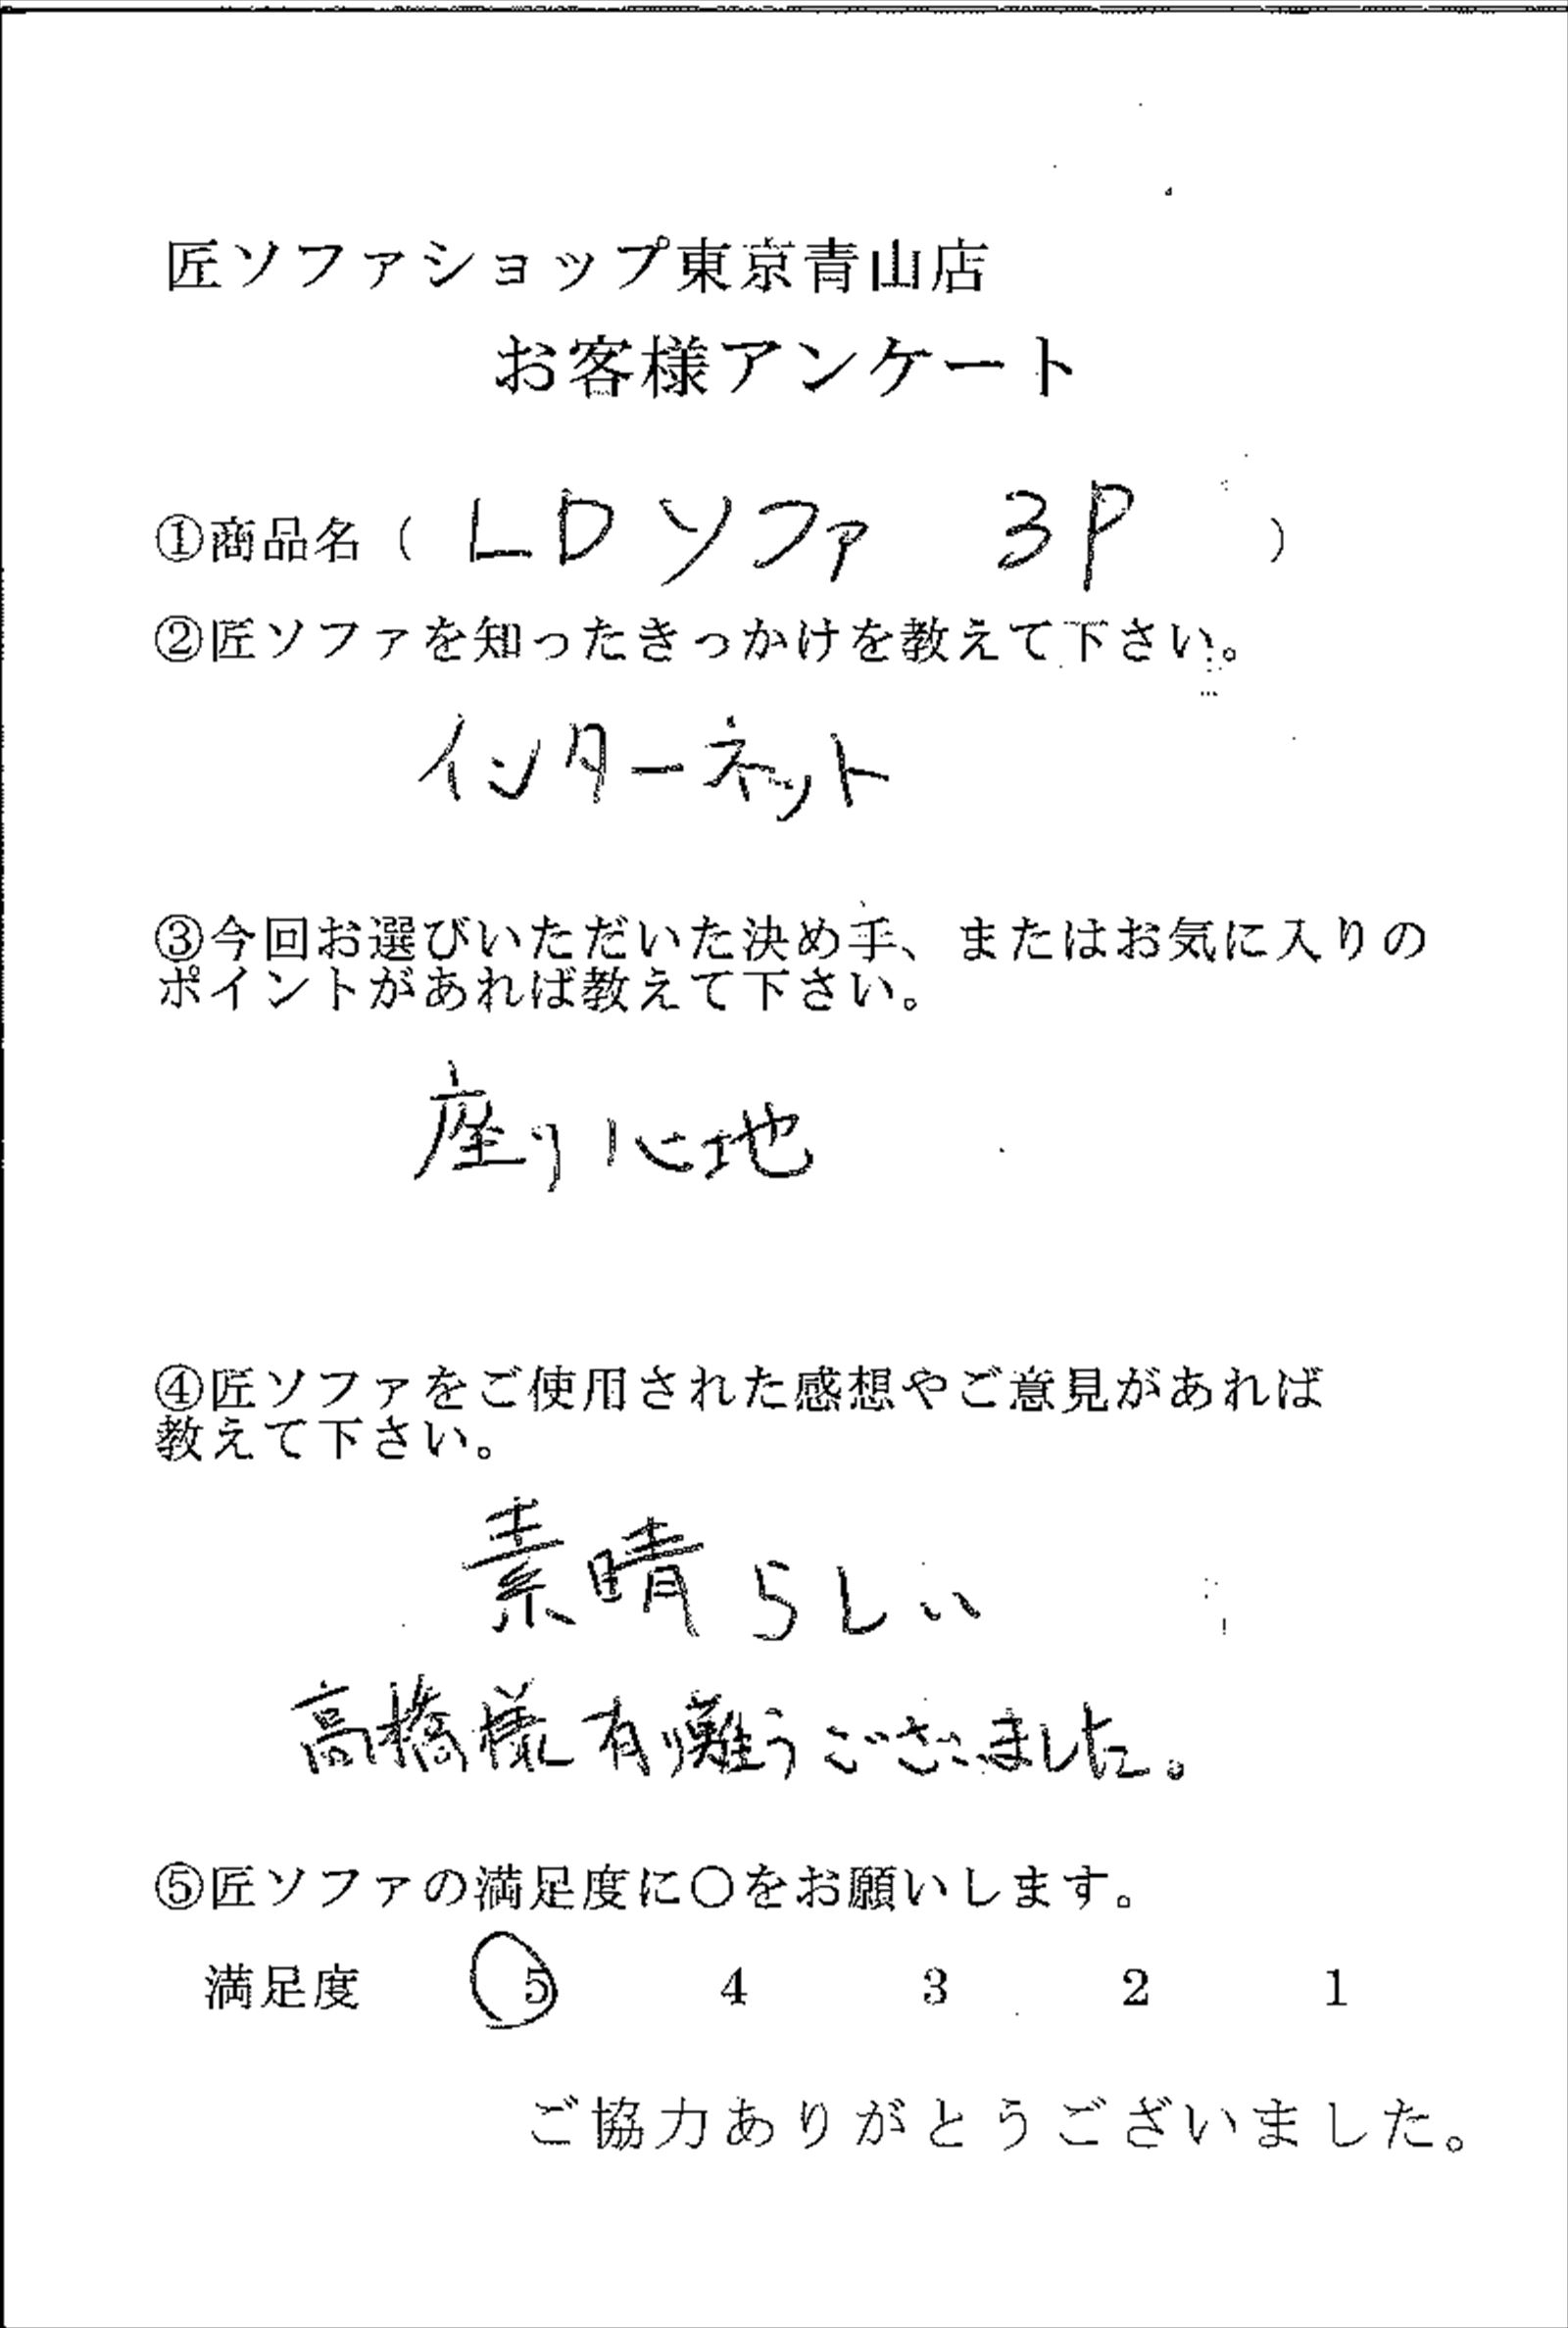 匠ソファショップ東京青山店
お客様アンケート
①商品名（ LDソファ 3P ）
②匠ソファを知ったきっかけを教えて下さい。
インターネット
③今回お選びいただいた決め手、またはお気に入りの
ポイントがあれば教えて下さい。
座り心地
④匠ソファをご使用された感想やご意見があれば
教えて下さい。
素晴らしい
高橋様有り難うございました。
⑤匠ソファの満足度に〇をお願いします。
満足度 5 4 3 2 1
ご協力ありがとうございました。